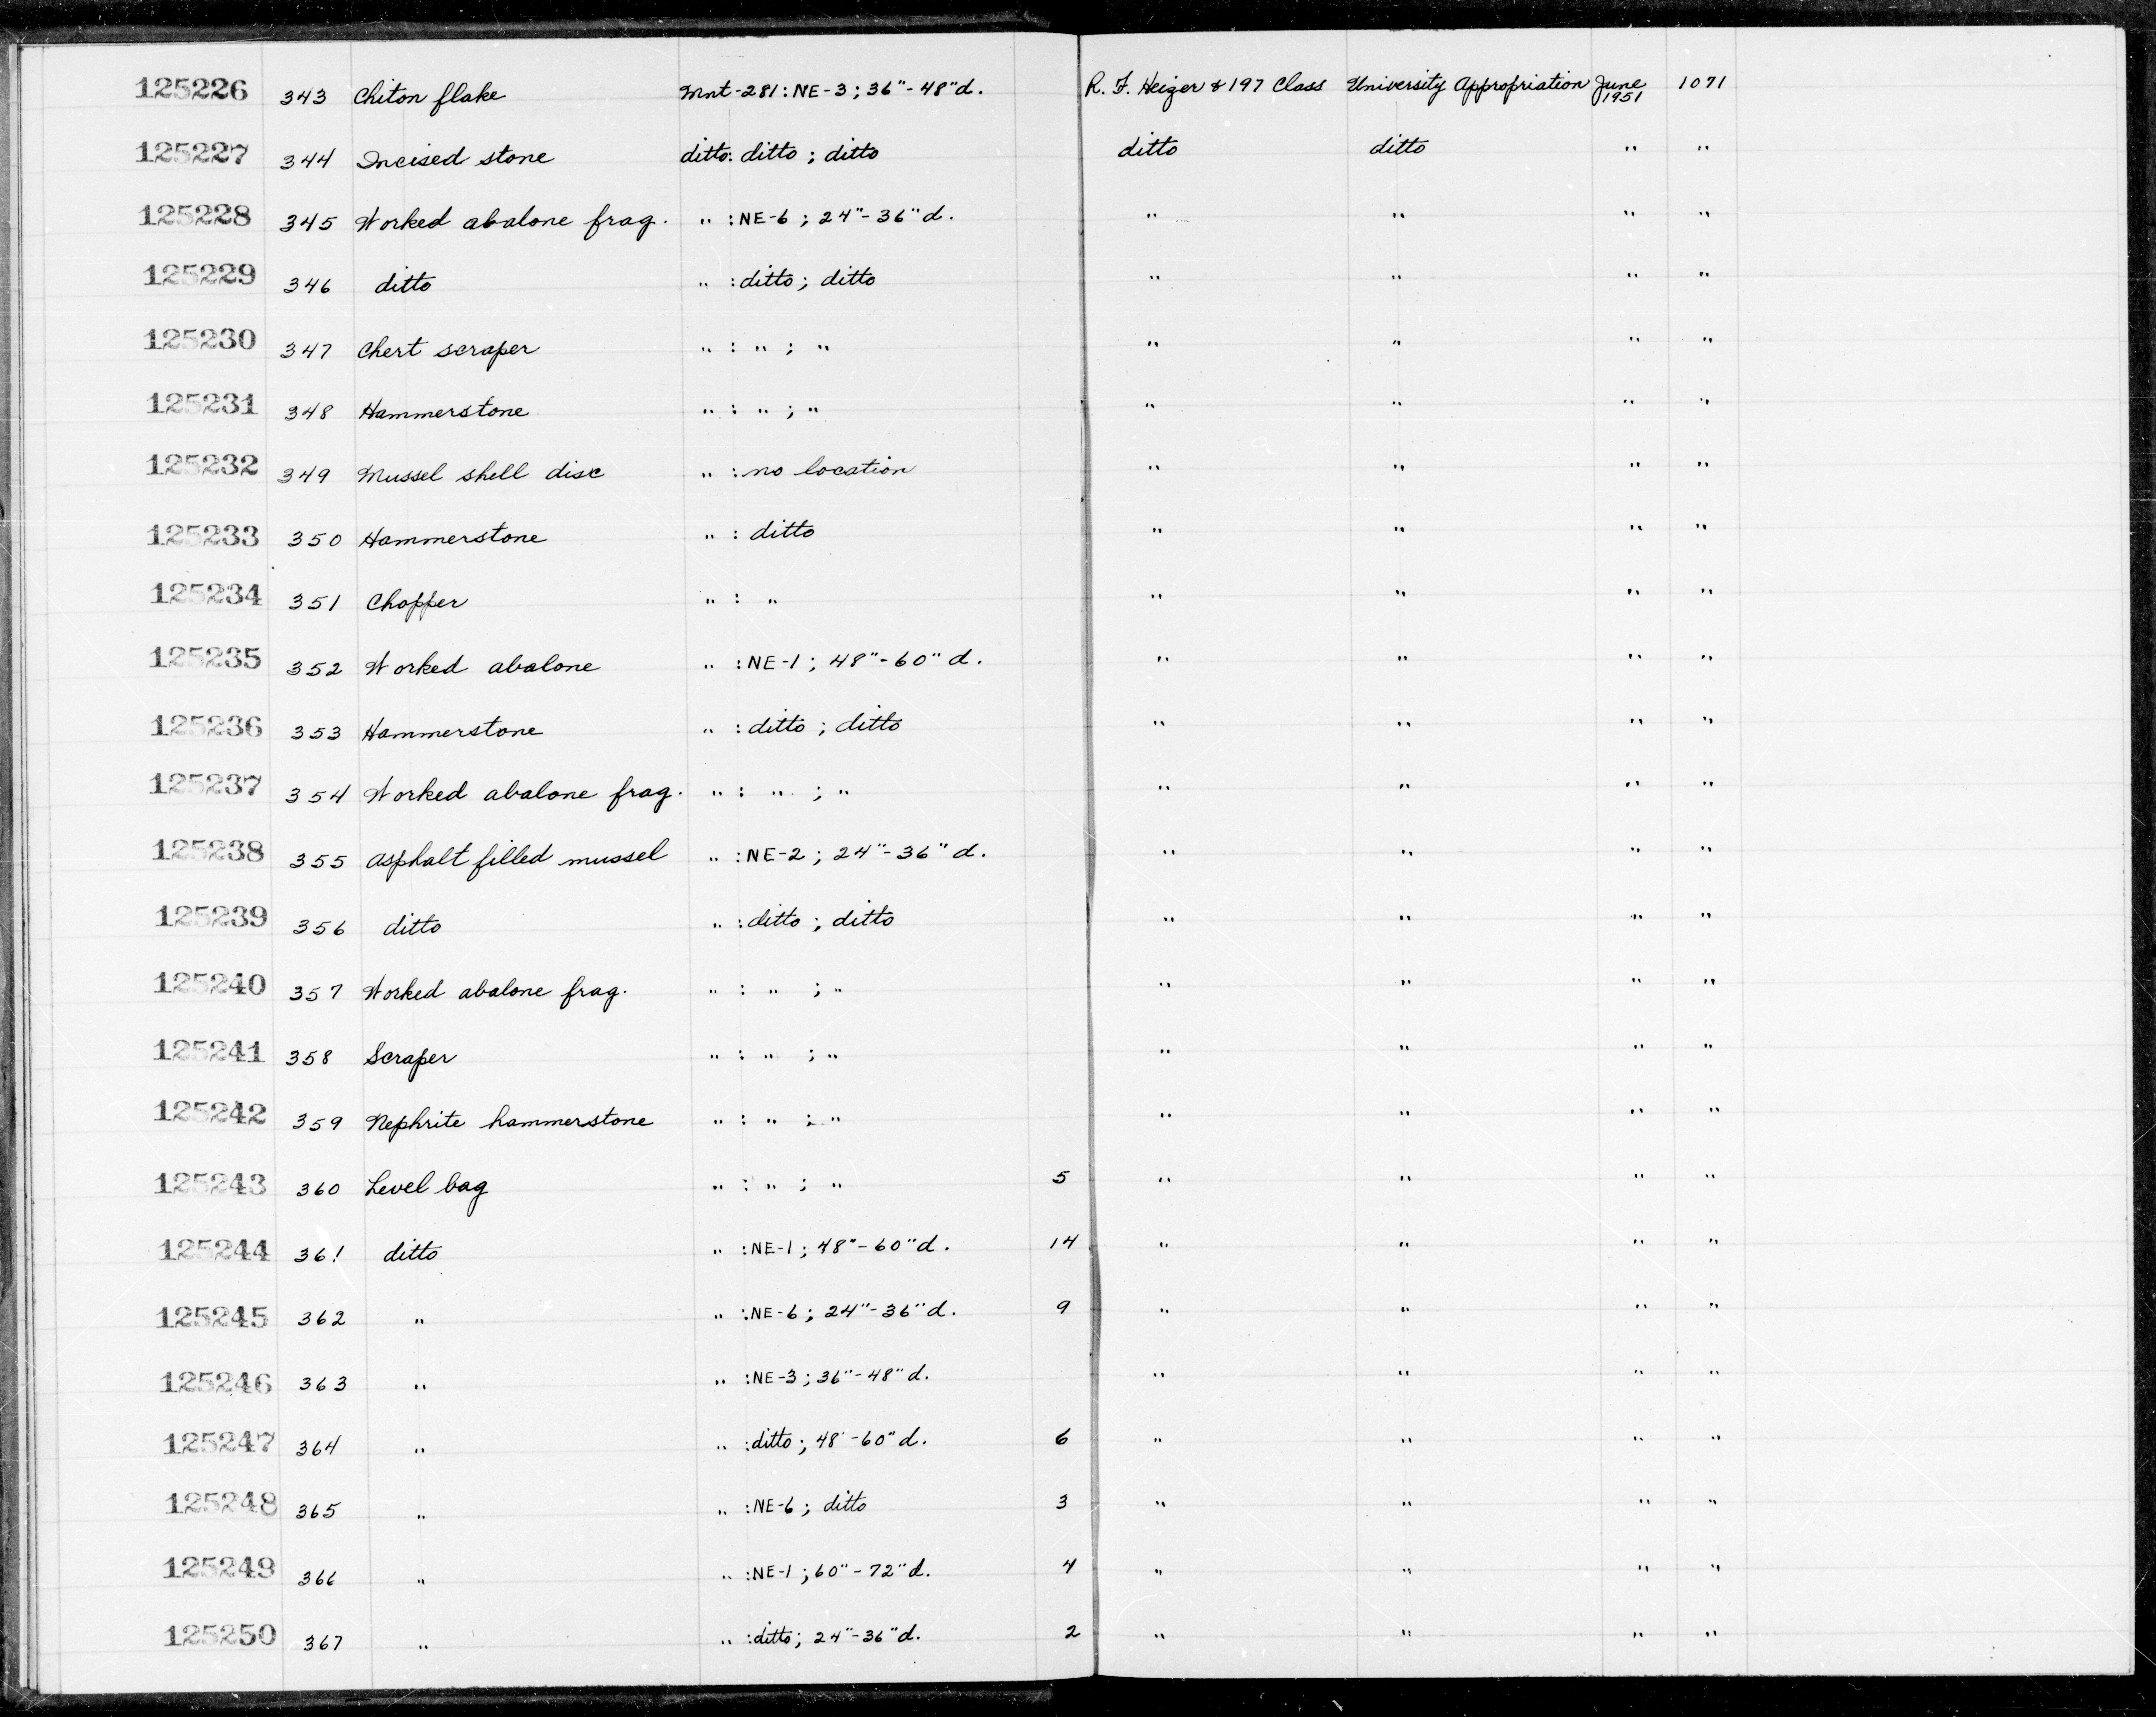 125226 343 Chiton flake Mnt-281: NE-3; 36"-48"d. R. F. Heizer & 197 Class University Appropriation June 1951 1071
125227 344 Incised stone ditto: ditto; ditto ditto ditto " "
125228 345 Worked abalone frag. " : NE-6; 24"-36"d. " " " "
125229 346 ditto " : ditto; ditto " " " "
125230 347 Chert scraper " : " ; " " " " "
125231 348 Hammerstone " : " ; " " " " "
125232 349 Mussel shell disc " : no location " " " "
125233 350 Hammerstone " : ditto " " " "
125234 351 Chopper " : " " " " "
125235 352 Worked abalone " : NE-1; 48"-60"d. " " " "
125236 353 Hammerstone " : ditto; ditto " " " "
125237 354 Worked abalone frag. " : " ; " " " " "
125238 355 Asphalt filled mussel " : NE-2; 24"-36"d. " " " "
125239 356 ditto " : ditto; ditto " " " "
125240 357 Worked abalone frag. " : " ; " " " " "
125241 358 Scraper " : " ; " " " " "
125242 359 Nephrite hammerstone " : " ; " " " " "
125243 360 Level bag " : " ; " 5 " " " "
125244 361 ditto " : NE-1; 48"-60"d. 14 " " " "
125245 362 " " : NE-6; 24"-36"d. 9 " " " "
125246 363 " " : NE-3; 36"-48"d. " " " "
125247 364 " " : ditto; 48'-60"d. 6 " " " "
125248 365 " " : NE-6; ditto 3 " " " "
125249 366 " " : NE-1; 60"-72"d. 4 " " " "
125250 367 " " : ditto; 24"-36"d. 2 " " " "